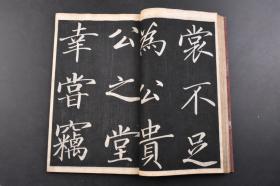 裳不足
為公貴
公之堂
幸嘗竊